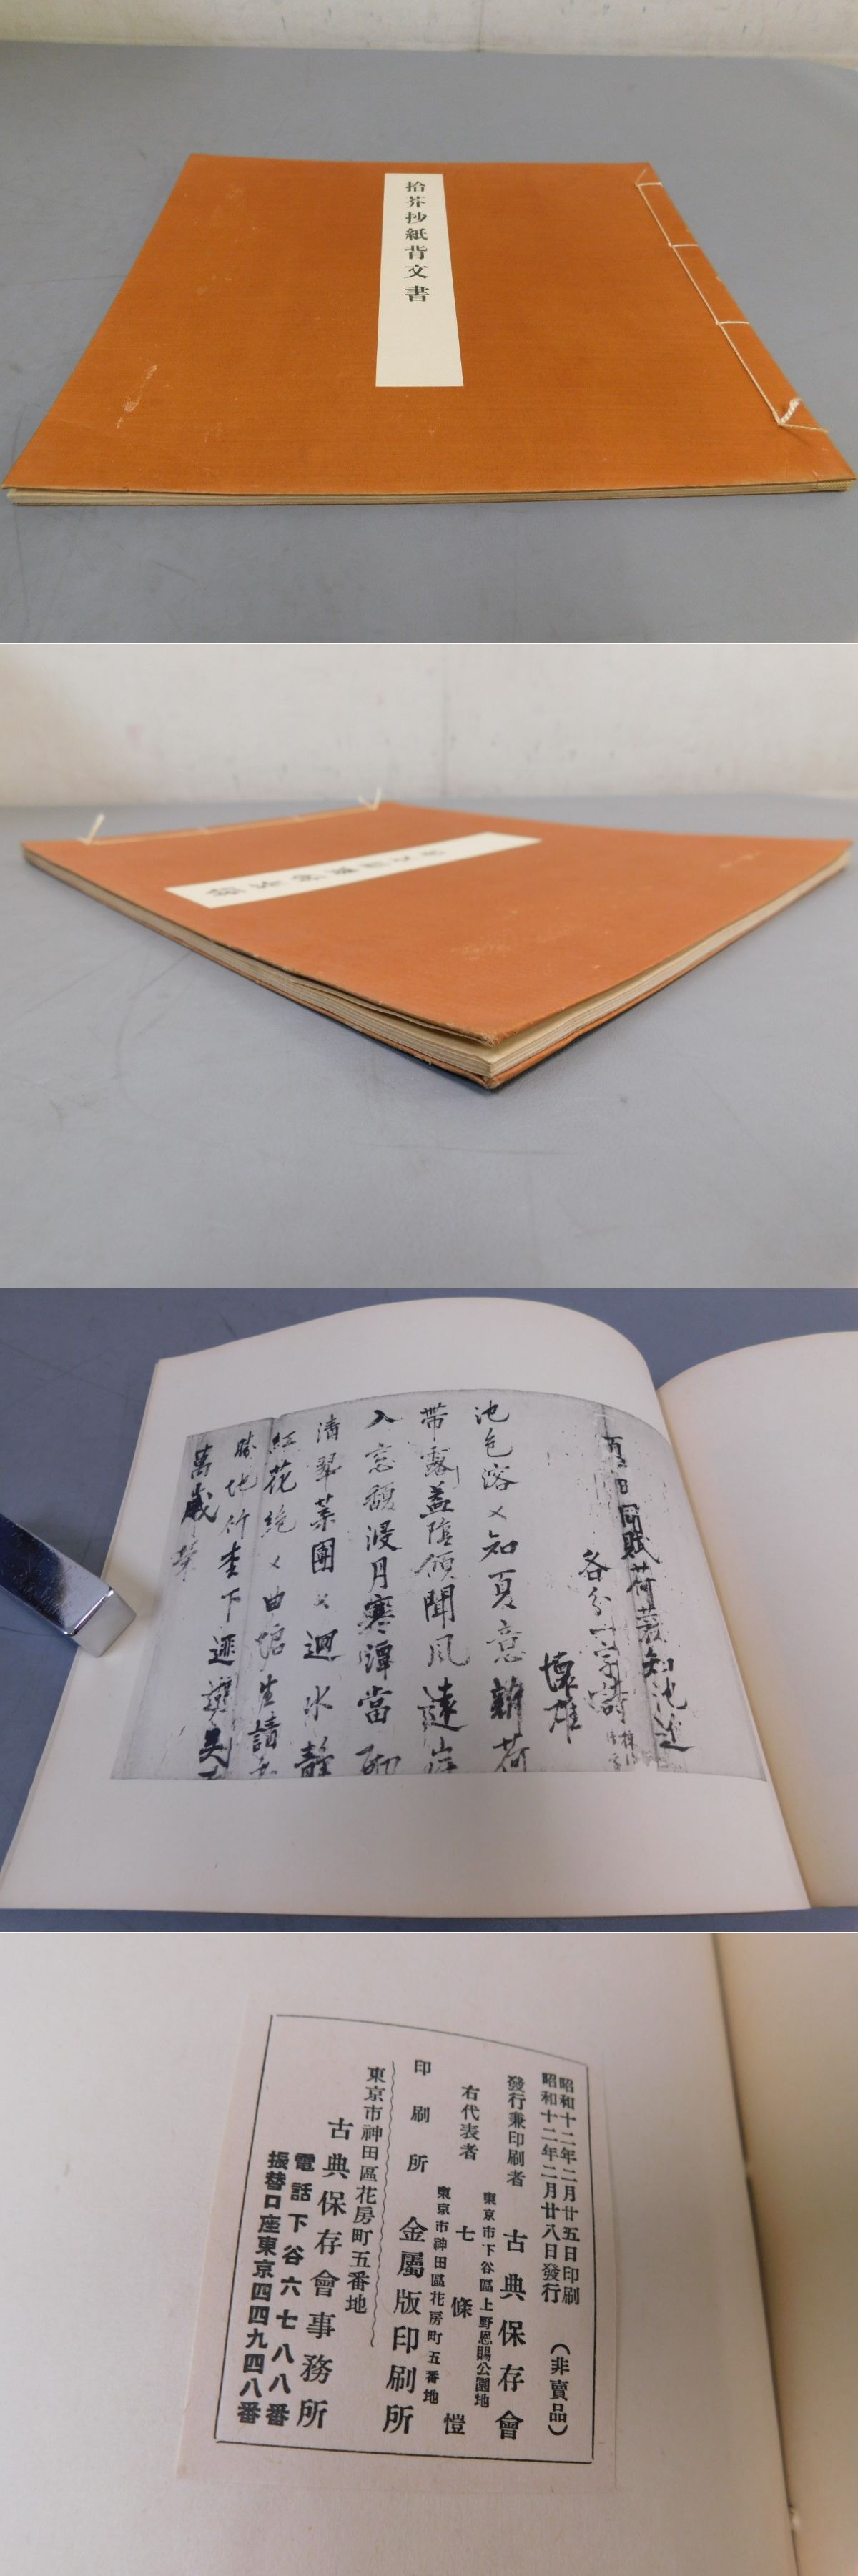 拾芥抄紙背文書
夏日同賦荷葉知池
各分一字詩
懐雄
池色溶々知夏意新荷
帯露蓋陰傾聞風遠岸
入窓馥浸月寒潭當砌
清翠葉團々迴水静
紅花絶々曲塘生請
勝地竹李下遊
萬歳
昭和十二年二月廿五日印刷
昭和十二年二月廿八日發行
(非賣品)
發行兼印刷者
東京市下谷區上野恩賜公園地
古典保存會
右代表者
東京市神田區花房町五番地
七條愷
印刷所
金屬版印刷所
東京市神田區花房町五番地
古典保存會事務所
電話下谷六七八八番
振替口座東京四四九四八番